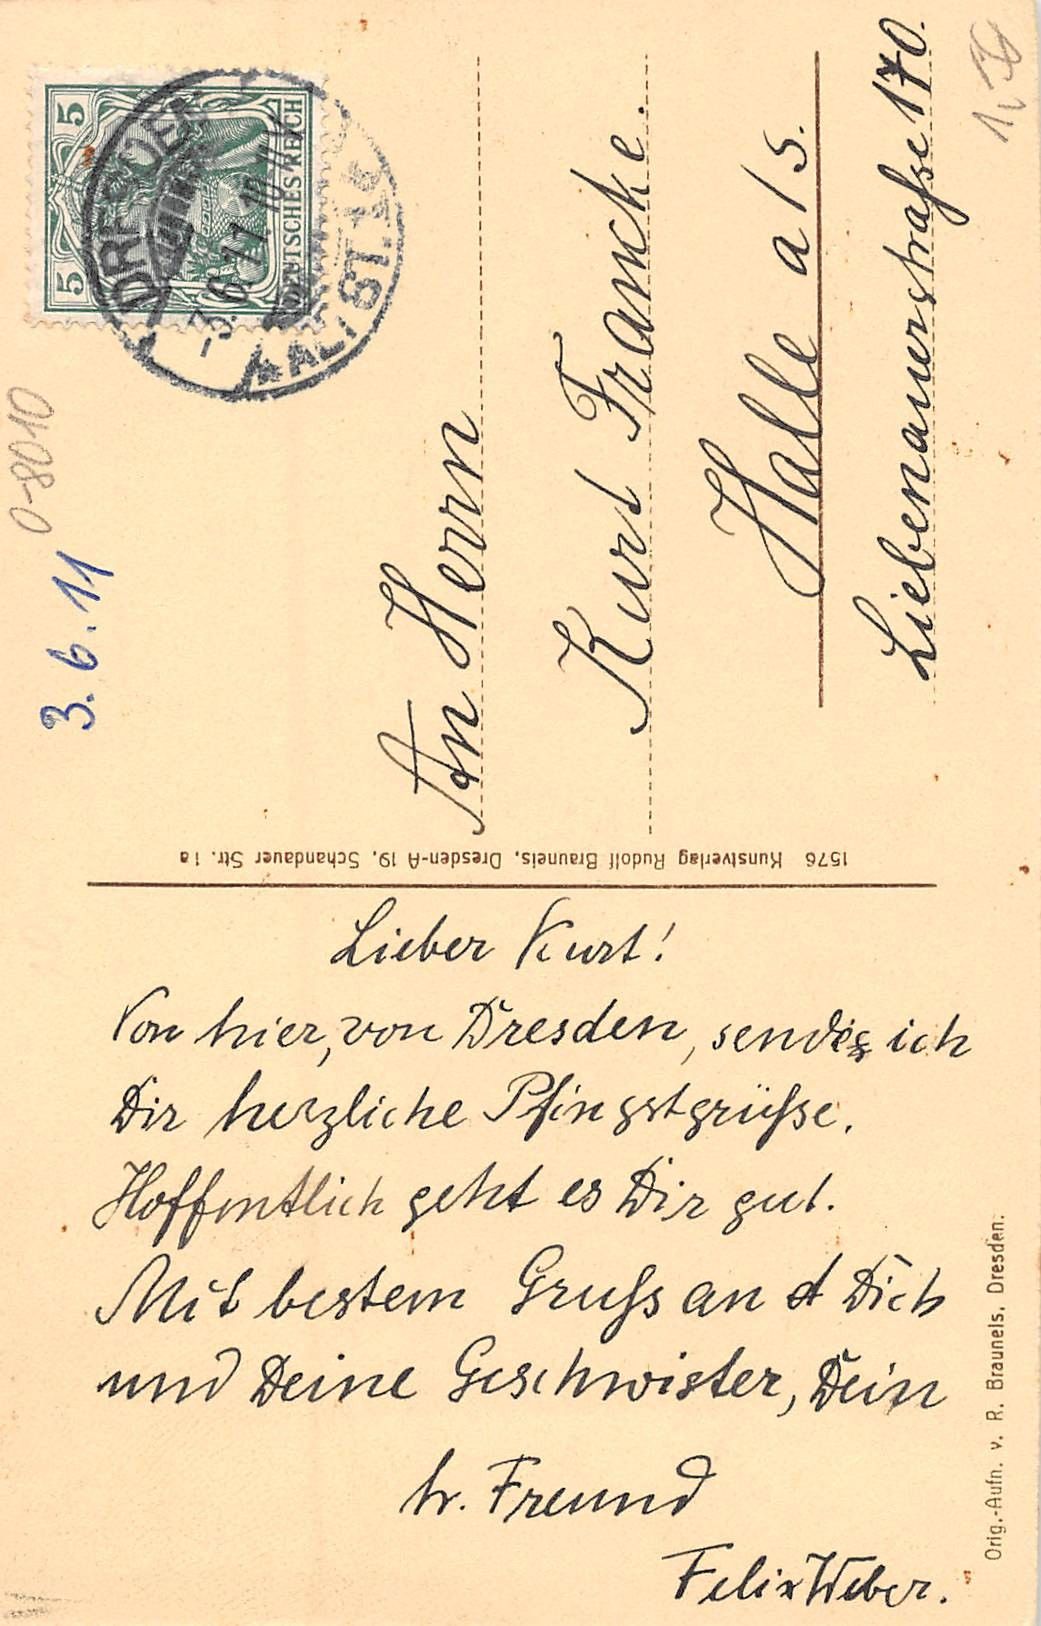 5 5
DEUTSCHES REICH
DRESDEN
3.6.11
ALTST. 16
0-8010
3. 6. 11
1,50
An Herrn
Kurt Francke.
Halle a/S.
Liebenauerstraße 170.
1576 Kunstverlag Rudolf Brauneis, Dresden-A 19, Schandauer Str. 1a
Lieber Kurt!
Von hier, von Dresden, sende ich
Dir herzliche Pfingstgrüße.
Hoffentlich geht es Dir gut.
Mit bestem Gruß an Dich
und Deine Geschwister, Dein
tr. Freund
Felix Weber.
Orig.-Aufn. v. R. Brauneis, Dresden.